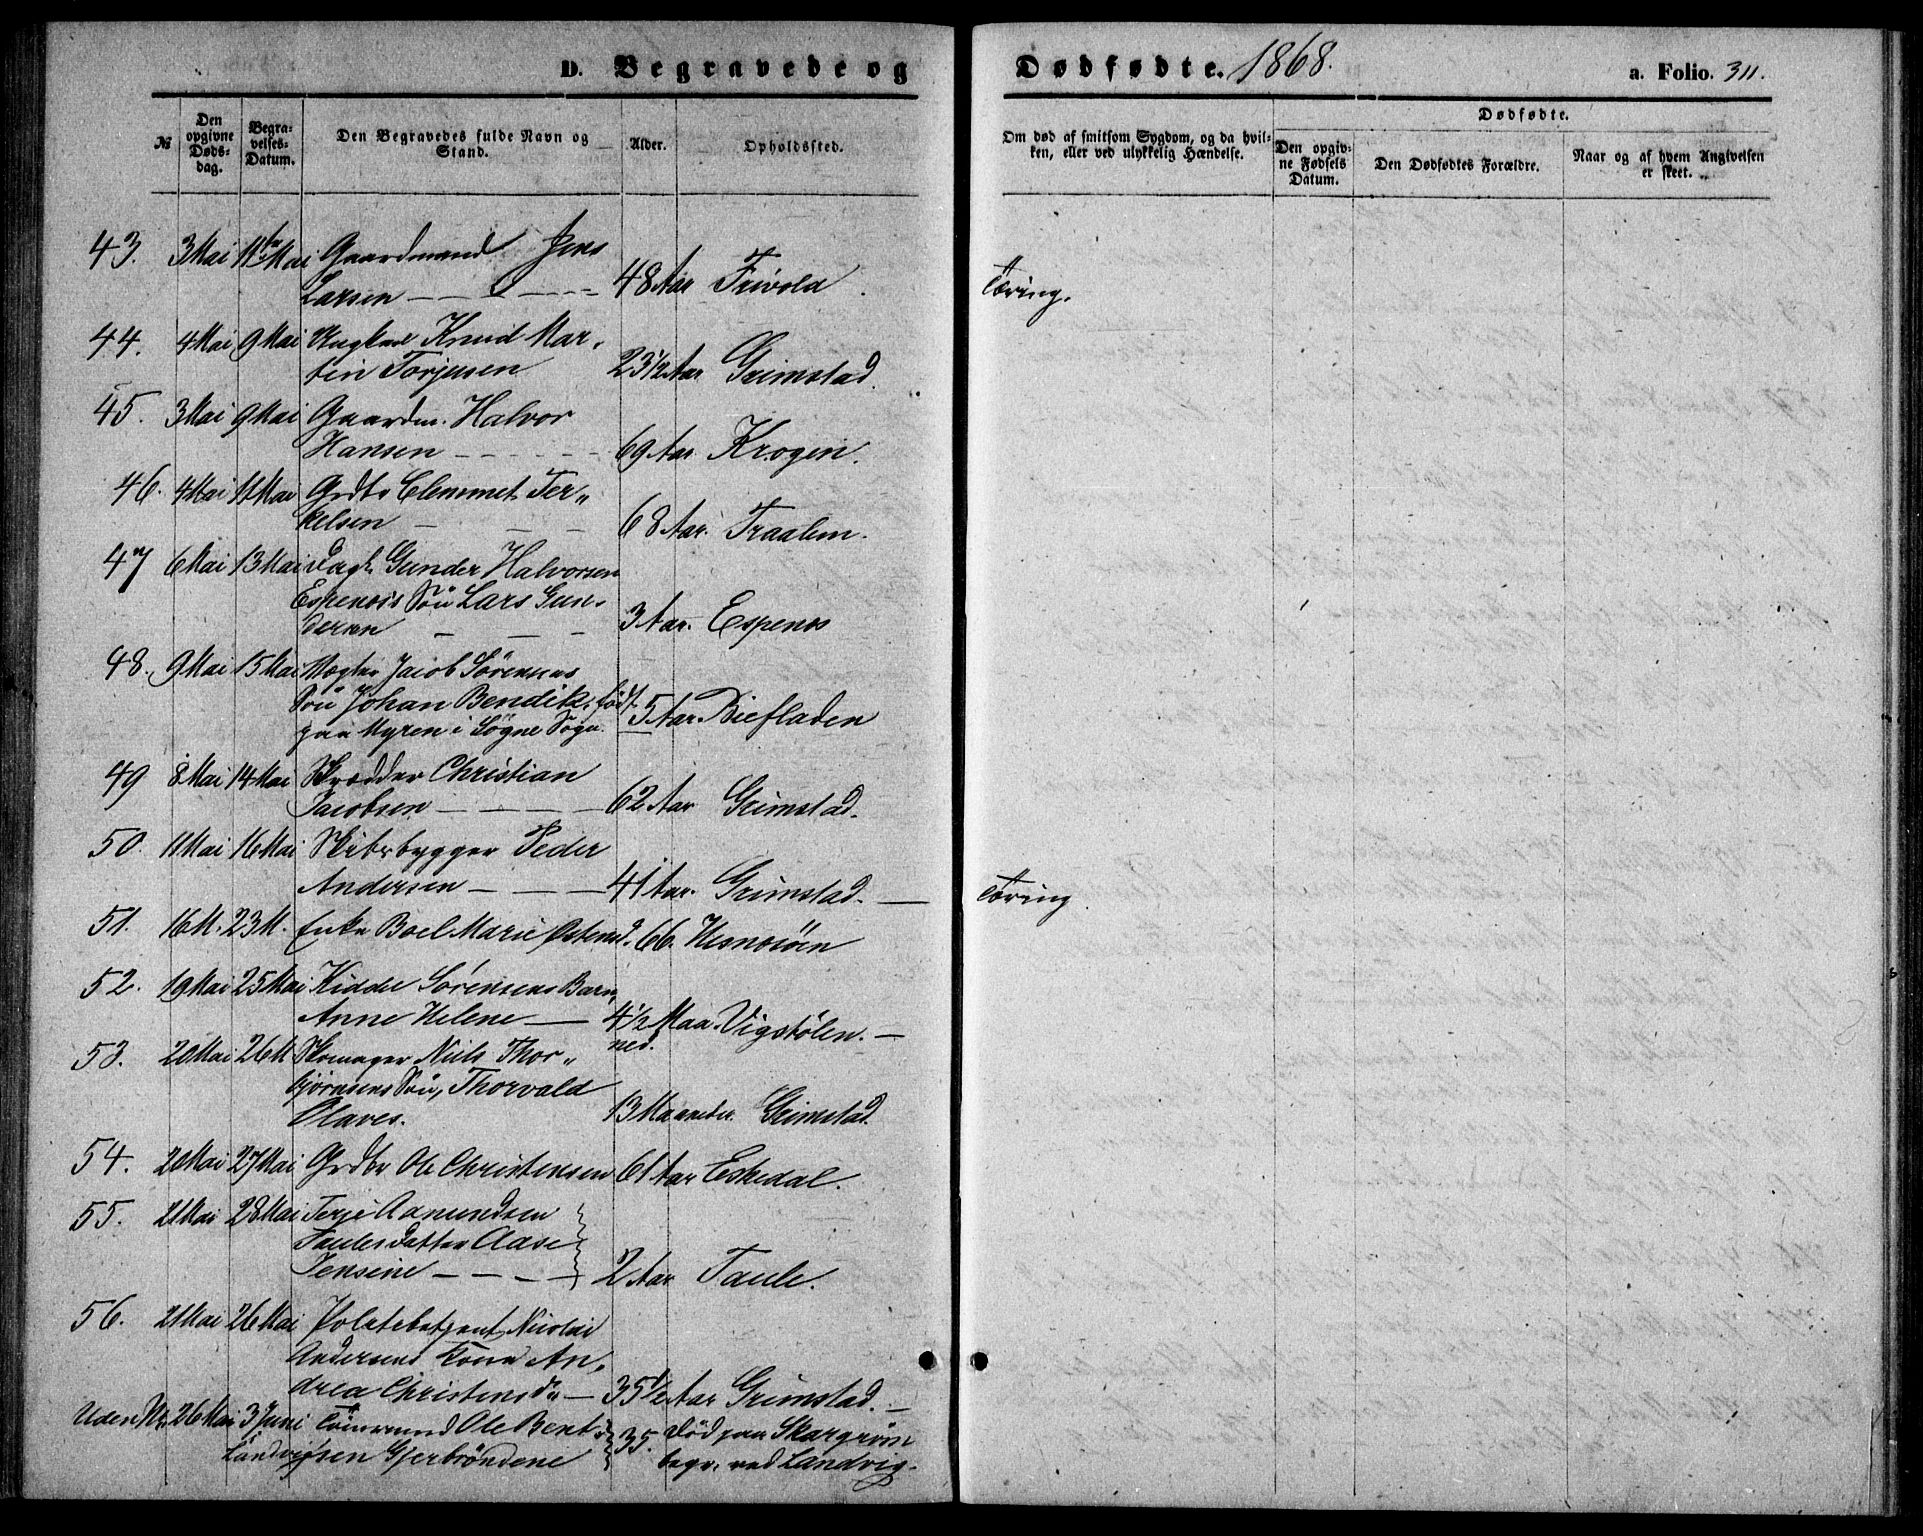 D. Begravede og
Dødfødte. 1868.
a. Folio. 311.
№
Den opgivne Døds-dag.
Begra-velses-Datum.
Den Begravedes fulde Navn og Stand.
Alder.
Opholdssted.
Om død af smitsom Sygdom, og da hvil-
ken, eller ved ulykkelig Hændelse.
Dødfødte.
Den opgiv-ne Fødsels Datum.
Den Dødfødtes Forældre.
Naar og af hvem Angivelsen
er skeet.
43. 3 Mai 11te Mai Gaardmand Jens
Larsen — 48 Aar Frivold. Tæring.
44. 4 Mai 9 Mai Ungkarl Knud Mar-
tin Torjusen 23 1/2 Aar Grimstad.
45. 3 Mai 9 Mai Gaardm. Halvor
Hansen — 69 Aar Krogen.
46. 4 Mai 11 Mai Grdbr Clemmet Ter-
kelsen — 68 Aar. Traalem.
47 6 Mai 13 Mai Gunder Halvorsen
Espenæs Søn Lars Gun-
dersen — 3 Aar. Espenæs
48. 9 Mai 15 Mai Vægter Jacob Sørensens
Søn Johan Bendik, født
paa Myren i Søgne Sogn. 5 Aar. Biefladen
49 8 Mai 14 Mai Skrædder Christian
Jacobsen — 62 Aar Grimstad.
50. 11 Mai 16 Mai Skibsbygger Peder
Andersen — 41 Aar. Grimstad. — Tæring
51. 16 M. 23 M. Enke Boel Marie Ostensd. 66. Hesnesøen
52. 19 Mai 25 Mai Kidde Sørensens Barn,
Anne Helene — 4 1/2 Maa- Vigstølen. —
ned.
53. 20 Mai 26 M Skomager Niels Thor-
bjørnsens Søn, Thorvald
Olaves. 13 Maaneder. Grimstad.
54. 20 Mai 27 Mai Grdbr Ole Christensen 61 Aar Eskedal.
55. 21 Mai 28 Mai Terje Aamundsen
Taules Datter Aase
Jensine — 2 Aar Taule.
56. 21 Mai 26 Mai Politibetjent Nicolai
Andersens Kone An-
drea Christensd. — 35 1/2 Aar Grimstad. —
Uden Nr. 26 Mai 3 Juni Tømmermand Ole Bent- 35. Død paa Skargrøn
Landvig sen Gjerbrøndene begr. ved Landvig.